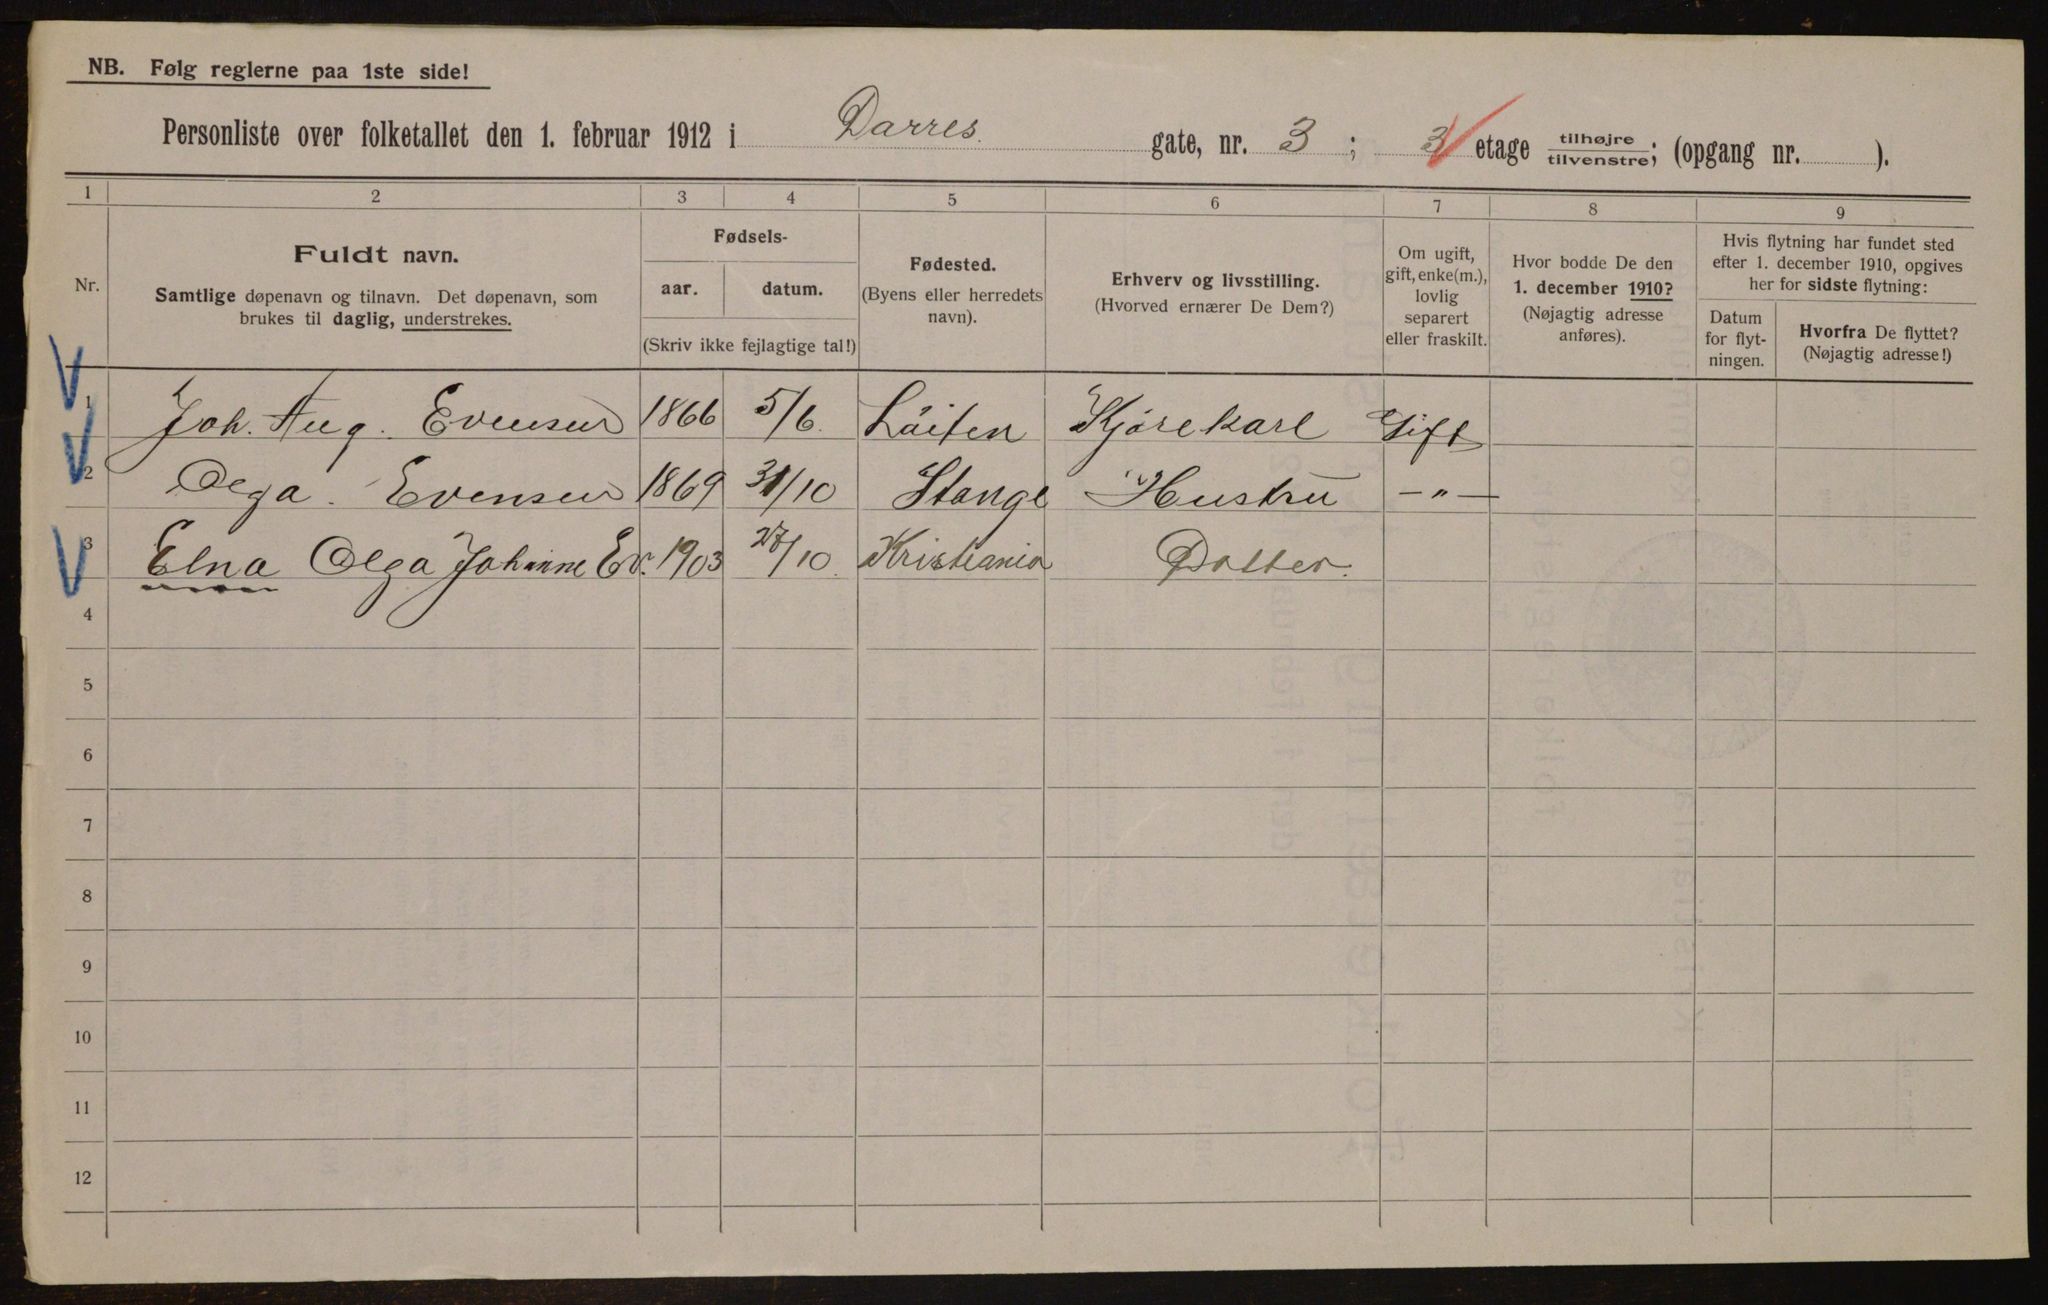 NB. Følg reglerne paa 1ste side!
Personliste over folketallet den 1. februar 1912 i Darres. gate, nr. 3 ; 3 etage tilhøjre/tilvenstre; (opgang nr. ).
1 2 3 4 5 6 7 8 9
Nr.
Fuldt navn.
Samtlige døpenavn og tilnavn. Det døpenavn, som
brukes til daglig, understrekes.
Fødsels-
aar. datum.
(Skriv ikke fejlagtige tal!)
Fødested.
(Byens eller herredets
navn).
Erhverv og livsstilling.
(Hvorved ernærer De Dem?)
Om ugift,
gift, enke(m.),
lovlig
separert
eller fraskilt.
Hvor bodde De den
1. december 1910?
(Nøjagtig adresse
anføres).
Hvis flytning har fundet sted
efter 1. december 1910, opgives
her for sidste flytning:
Datum
for flyt-
ningen.
Hvorfra De flyttet?
(Nøjagtig adresse!)
1 Joh. Aug. Evensen 1866 5/6. Löiten Kjörekarl Gift
2 Olga. Evensen 1869 31/10 Stange Hustru —"—
3 Elna Olga Johanne Ev. 1903 /10. Kristiania Datter.
4
5
6
7
8
9
10
11
12